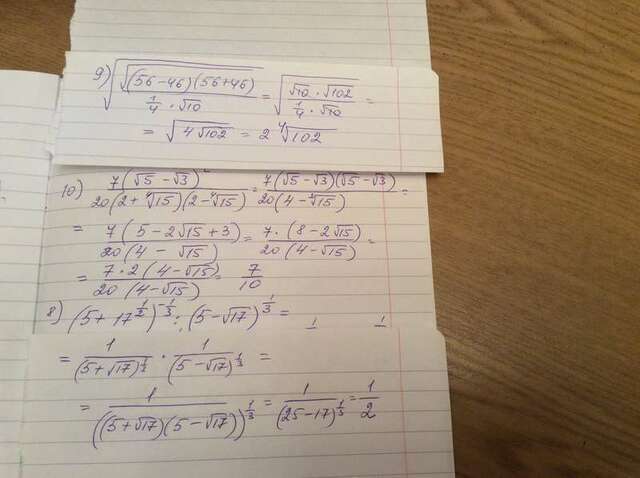 9) √(√((56-46)(56+46)) / (1/4 · √10)) = √((√10 · √102) / (1/4 · √10)) =
= √(4√102) = 2 ⁴√102
10) 7(√5 - √3)² / (20(2+⁴√15)(2-⁴√15)) = 7(√5 - √3)(√5 - √3) / (20(4-²√15)) =
= 7(5 - 2√15 + 3) / (20(4 - √15)) = 7·(8 - 2√15) / (20(4-√15)) =
= 7·2(4-√15) / (20(4-√15)) = 7/10
8) (5+17^(1/2))^(-1/3) : (5-√17)^(1/3) =
= 1/(5+√17)^(1/3) · 1/(5-√17)^(1/3) =
= 1/((5+√17)(5-√17))^(1/3) = 1/(25-17)^(1/3) = 1/2